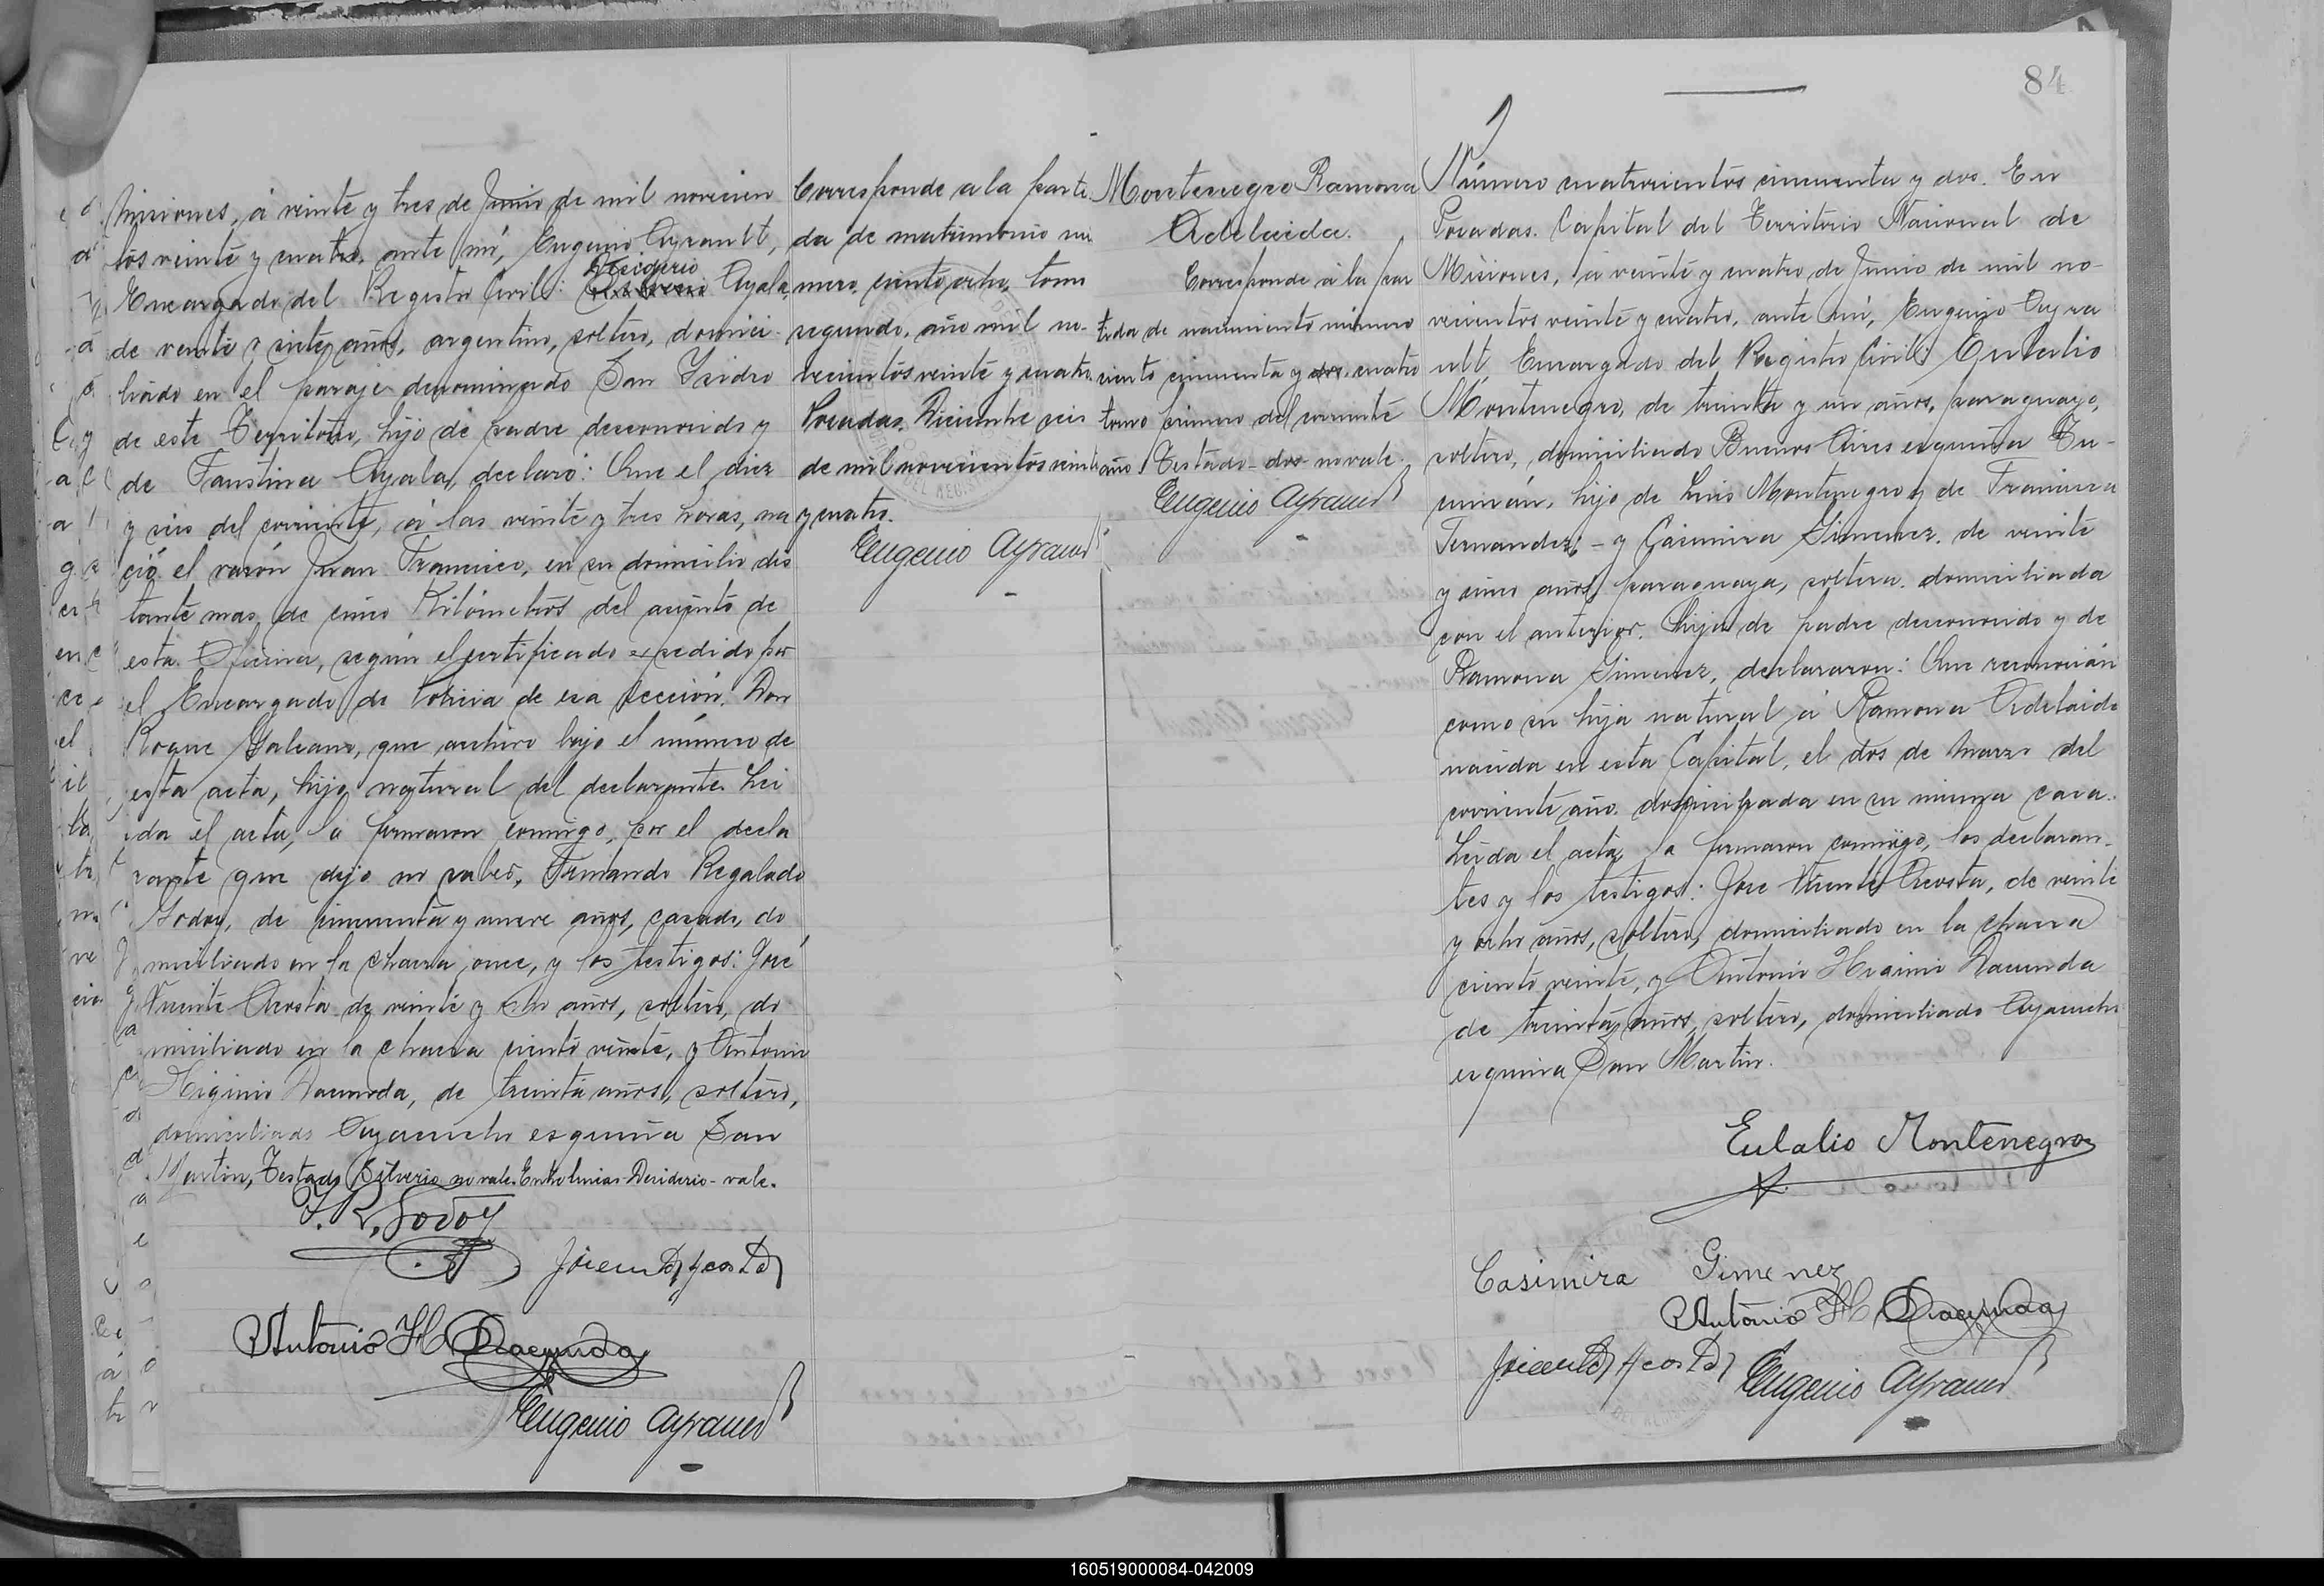 Misiones, á veinte y tres de Junio de mil novecien
tos veinte y cuatro, ante mí, Eugenio Ayrault,
Desiderio
Encargado del Registro Civil: Ayala,
de veinte y siete años, argentino, soltero, domici-
liado en el paraje denominado San Isidro
de este Territorio, hijo de padre desconocido y
de Faustina Ayala, declaró: Que el diez
y seis del corriente, á las veinte y tres horas, na
ció el varón Juan Francisco, en su domicilio dis
tante mas de cinco Kilómetros del asiento de
esta Oficina, según el certificado expedido por
el Encargado de Policia de esa Sección, Don
Roque Galeano, que archivo bajo el número de
esta acta, hijo natural del declarante. Lei
da el acta, la firmaron conmigo, por el decla
rante que dijo no saber, Fernando Regalado
Godoy, de cincuenta y nueve años, casado, do
miciliado en la chacra once, y los testigos: José
Vicente Acosta de veinte y ocho años, soltero, do
miciliado en la chacra ciento veinte, y Antonio
Higinio Dacunda, de treinta años, soltero,
domiciliado Ayacucho esquina San
Martin, Testado Silverio no vale. Entre lineas-Desiderio-vale.
F. R. Godoy
José Vte Acosta
Antonio H Dacunda
Eugenio Ayrault
Corresponde a la parti
da de matrimonio nú
mero ciento ocho, tomo
segundo, año mil no-
vecientos veinte y cuatro.
Posadas, Diciembre seis
de mil novecientos veinte
y cuatro.
Eugenio Ayrault
84
Montenegro Ramona
Adelaida.
Corresponde á la par
tida de nacimiento número
ciento cincuenta y dos cuatro
tomo primero del corriente
año. Testado-dos-no vale.
Eugenio Ayrault
Número cuatrocientos cincuenta y dos. En
Posadas. Capital del Territorio Nacional de
Misiones, á veinte y cuatro de Junio de mil no-
vecientos veinte y cuatro, ante mí, Eugenio Ayra
ult, Encargado del Registro Civil: Eulalio
Montenegro, de treinta y un años, paraguayo,
soltero, domiciliado Buenos Aires esquina Tu-
cumán, hijo de Luis Montenegro y de Francisca
Fernandez; - y Casimira Gimenez, de veinte
y cinco años, paraguaya, soltera, domiciliada
con el anterior, hija de padre desconocido y de
Ramona Gimenez, declararon: Que reconocian
como su hija natural á Ramona Adelaida
nacida en esta Capital, el dos de Marzo del
corriente año, domiciliada en su misma casa.
Leida el acta, la firmaron conmigo, los declaran-
tes y los testigos: José Vicente Acosta, de veinte
y ocho años, soltero, domiciliado en la chacra
ciento veinte, y Antonio Higinio Dacunda
de treinta años, soltero, domiciliado Ayacucho
esquina San Martin.
Eulalio Montenegro
Casimira Gimenez
Antonio H Dacunda
José Vte Acosta Eugenio Ayrault
160519000084-042009